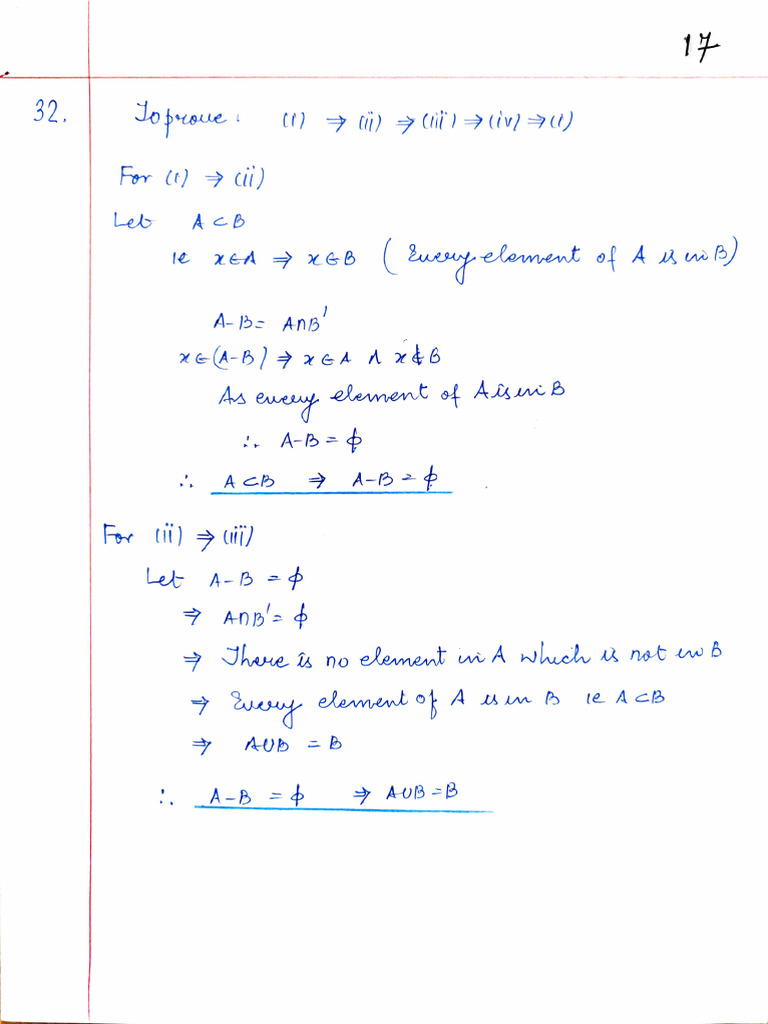 17
32. To prove : (i) ⇒ (ii) ⇒ (iii) ⇒ (iv) ⇒ (i)
For (i) ⇒ (ii)
Let A ⊂ B
ie x ∈ A ⇒ x ∈ B ( Every element of A is in B)
A - B = A ∩ B'
x ∈ (A - B) ⇒ x ∈ A ∧ x ∉ B
As every element of A is in B
∴ A - B = ϕ
∴ A ⊂ B ⇒ A - B = ϕ
For (ii) ⇒ (iii)
Let A - B = ϕ
⇒ A ∩ B' = ϕ
⇒ There is no element in A which is not in B
⇒ Every element of A is in B ie A ⊂ B
⇒ A ∪ B = B
∴ A - B = ϕ ⇒ A ∪ B = B